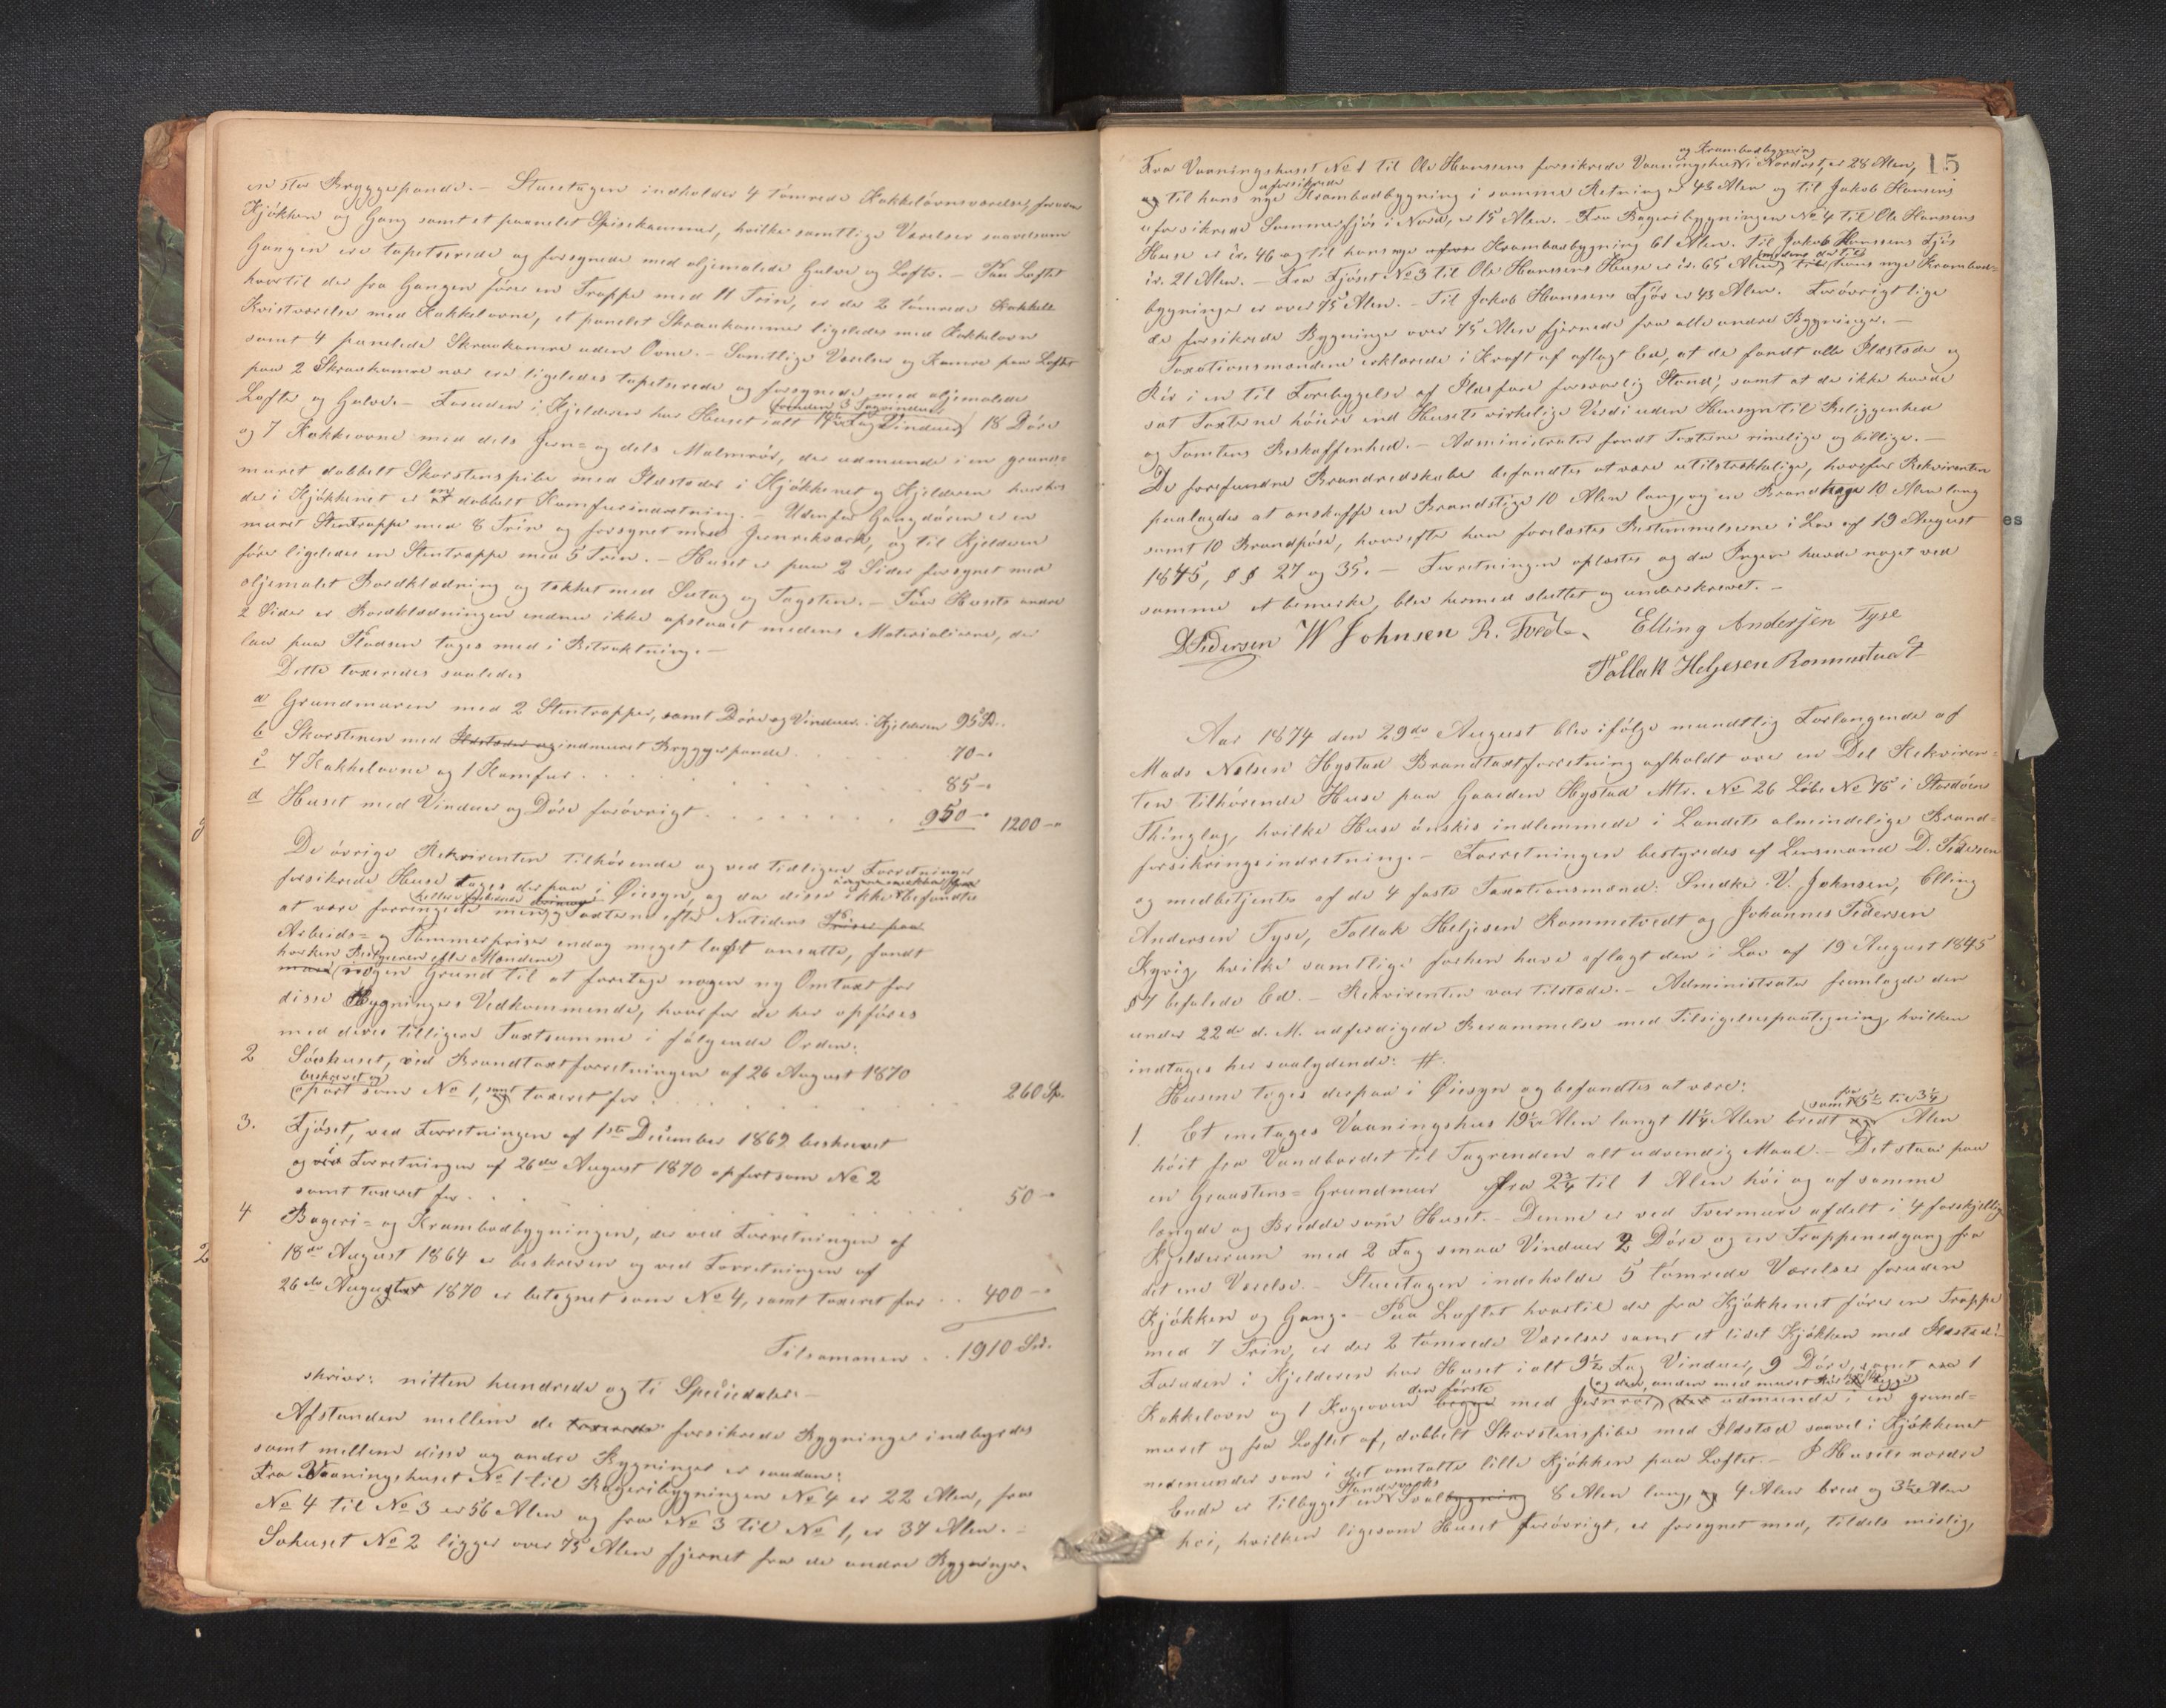 en stor Bryggepande. — Stueetagen indholder 4 tömrede Kakkelovnsværelser, foruden
Kjökken og Gang samt et paanelet Spisekammer, hvilke samtlige Værelser saavelsom
Gangen ere tapetserede og forsynede med oljemalede Gulve og Lofte. — Paa Loftet
hvortil der fra Gangen förer en Trappe med 11 Trin, er der 2 tömrede Kakkel-
Kvistværelser med Kakkelovne, et panelet Skraakammer ligeledes med Kakkelovn
samt 4 panelede Skraakamre uden Ovne. — Samtlige Værelser og Kamre paa Loftet
paa 2 Skraakamre nær ere ligeledes tapetserede og forsynede med oljemalede
Lofte og Gulve. — Foruden i Kjelderen har Huset ialt 17½ Fag Vinduer, foruden 3 Tagvinduer, 18 Döre
og 7 Kakkelovne med dels Jern- og dels Malmrör, der udmunde i en grund-
muret dobbelt Skorstenspibe med Ildsteder i Kjökkenet og Kjelderen hvorhos
der i Kjökkenet er en dobbelt Komfurindretning. — Udenfor Gangdören er en
muret Stentrappe med 8 Trin og forsynet med Jernrekværk, og til Kjelderen
förer ligeledes en Stentrappe med 5 Trin. — Huset er paa 2 Sider forsynet med
oljemalet Bordklædning og tækket med Sutag og Tagsten. — Paa Husets andre
2 Sider er Bordklædningen endnu ikke opslaaet medens Materialierne, der
laa paa Pladsen toges med i Betraktning. —
Dette taxeredes saaledes
a Grundmuren med 2 Stentrapper, samt Döre og Vinduer i Kjelderen 95 Sp.
b Skorstenen med Ildsteder og indmuret Bryggerpande . . . 70 —
c 7 Kakkelovne og 1 Komfur . . . 85 —
d Huset med Vinduer og Döre forövrigt . . . 950 — 1200 —
De övrige Rekvirenten tilhörende og ved tidligere Forretninger
forsikrede Huse toges derpaa i Öiesyn, og da disse ikke befandtes
at være forringede men Taxterne efter Nutidens
Arbeids- og Tömmerpriser endog meget lavt ansatte, fandt
hverken Bestyreren eller Mændene nogen Grund til at foretage nogen ny Omtaxt for
disse Bygningers Vedkommende, hvorfor de her opföres
med deres tidligere Taxtsumme i fölgende Orden:
2 Söehuset, ved Brandtaxtforretningen af 26 August 1870
beskrevet og opfört som No 1, samt taxeret for . . . 260 Sp.
3. Fjöset, ved Forretningen af 1ste December 1862 beskrevet
og ved Forretningen af 26de August 1870 opfört som No 2
samt taxeret for . . . 50 —
4 Bageri- og Krambodbygningen, der ved Forretningen af
18de August 1864 er beskreven og ved Forretningen af
26de August 1870 er betegnet som No 4, samt taxeret for . . 400 —
Tilsammen . . 1910 Spd.
skriver: nitten hundrede og ti Speciedaler. —
Afstanden mellem de forsikrede Bygninger indbyrdes
samt mellem disse og andre Bygninger er saadan:
Fra Vaaningshuset No 1 til Bageribygningen No 4 er 22 Alen, fra
No 4 til No 3 er 56 Alen og fra No 3 til No 1, er 37 Alen. —
Söhuset No 2 ligger over 75 Alen fjernet fra de andre Bygninger.
15
Fra Vaaningshuset No 1 til Ole Hanssens forsikrede Vaaningshus og Krambodbygning i Nordost, er 28 Alen,
og til hans nye uforsikrede Krambodbygning i samme Retning er 48 Alen og til Jakob Hansens
uforsikrede Sommerfjös i Nord, er 15 Alen. — Fra Bageribygningen No 4 til Ole Hanssens
Huse er ir. 46 og til hans nye Krambodbygning 61 Alen. Til Jakob Hanssens Fjös
ir. 21 Alen. — Fra Fjöset No 3 til Ole Hanssens Huse er ir. 65 Alen, medens der til hans nye Krambod-
bygninger er over 75 Alen. — Til Jakob Hanssens Fjös er 43 Alen. Forövrigt lige
de forsikrede Bygninger over 75 Alen fjernede fra alle andre Bygninger. —
Taxationsmændene erklærede i Kraft af aflagt Ed, at de fandt alle Ildsteder og
Rör i en til Forebyggelse af Ildsfare forsvarlig Stand, samt at de ikke havde
sat Taxterne höiere end Husets virkelige Værdi uden Hensyn til Beliggenhed
og Tomtens Beskaffenhed. — Administrator fandt Taxterne rimelige og billige. —
De forefundne Brandredskaber befandtes at være utilstrækkelige, hvorfor Rekvirenten
paalagdes at anskaffe en Brandstige 10 Alen lang, og en Brandhage 10 Alen lang
samt 10 Brandpöse, hvorefter han forelæstes Bestemmelserne i Lov af 19 August
1845, § § 27 og 35. — Forretningen oplæstes og da Ingen havde noget ved
samme at bemærke, blev hermed sluttet og underskrevet. —
D Pedersen W Johnsen R. Tvedt. Elling Andersen Tyse
Tollak Heljesen Rommetvedt
Aar 1874 den 29de August blev ifölge mundtlig Forlangende af
Mads Nelsen Hystad Brandtaxtforretning afholdt over en Del Rekviren-
ten tilhörende Huse paa Gaarden Hystad Mtr. No 26 Löbe No 75 i Stordöens
Thinglag, hvilke Huse önskes indlemmede i Landets almindelige Brand-
forsikringsindretning. — Forretningen bestyredes af Lensmand D. Pedersen
og medbetjentes af de 4 faste Taxationsmænd: Snedker W. Johnsen, Elling
Andersen Tyse, Tollak Heljesen Rommetvedt og Johannes Pedersen
Kyvig, hvilke samtlige forhen have aflagt den i Lov af 19 August 1845
§ 7 befalede Ed. — Rekvirenten var tilstede. — Administrator fremlagde den
under 22de d. M. udfærdigede Berammelse med Tilsigelsespaategning, hvilken
indtages her saalydende: #.
Husene toges derpaa i Öiesyn og befandtes at være:
1. Et enetages Vaaningshus 19½ Alen langt 11¼ Alen bredt samt fra 5½ til 3¾ Alen
höit fra Vandbordet til Tagrenden alt udvendig Maal. — Det staar paa
en Graastens-Grundmur fra 2¾ til 1 Alen höi og af samme
Længde og Bredde som Huset. — Denne er ved Tvermure afdelt i 4 forskjellige
Kjelderrum med 2 Fag smaa Vinduer 2 Döre og en Trappenedgang fra
det ene Værelse. — Stueetagen indeholder 5 tömrede Værelser foruden
Kjökken og Gang. — Paa Loftet hvortil der fra Kjökkenet förer en Trappe
med 7 Trin, er der 2 tömrede Værelser samt et lidet Kjökken med Ildsted. —
Foruden i Kjelderen har Huset ialt 9½ Fag Vinduer, 9 Döre, samt 1
Kakkelovn og 1 Kogeovn den förste med Jernrör, og den anden med muret udmunde i en grund-
muret og fra Loftet af, dobbelt Skorstenspibe med Ildsted saavel i Kjökkenet
nedenunder som i det omtalte lille Kjökken paa Loftet. — I Husets nordre
Ende er tilbygget en Standværks 8 Alen lang, 4 Alen bred og 3½ Alen
höi, hvilken ligesom Huset forövrigt, er forsynet med, tildels mislig,